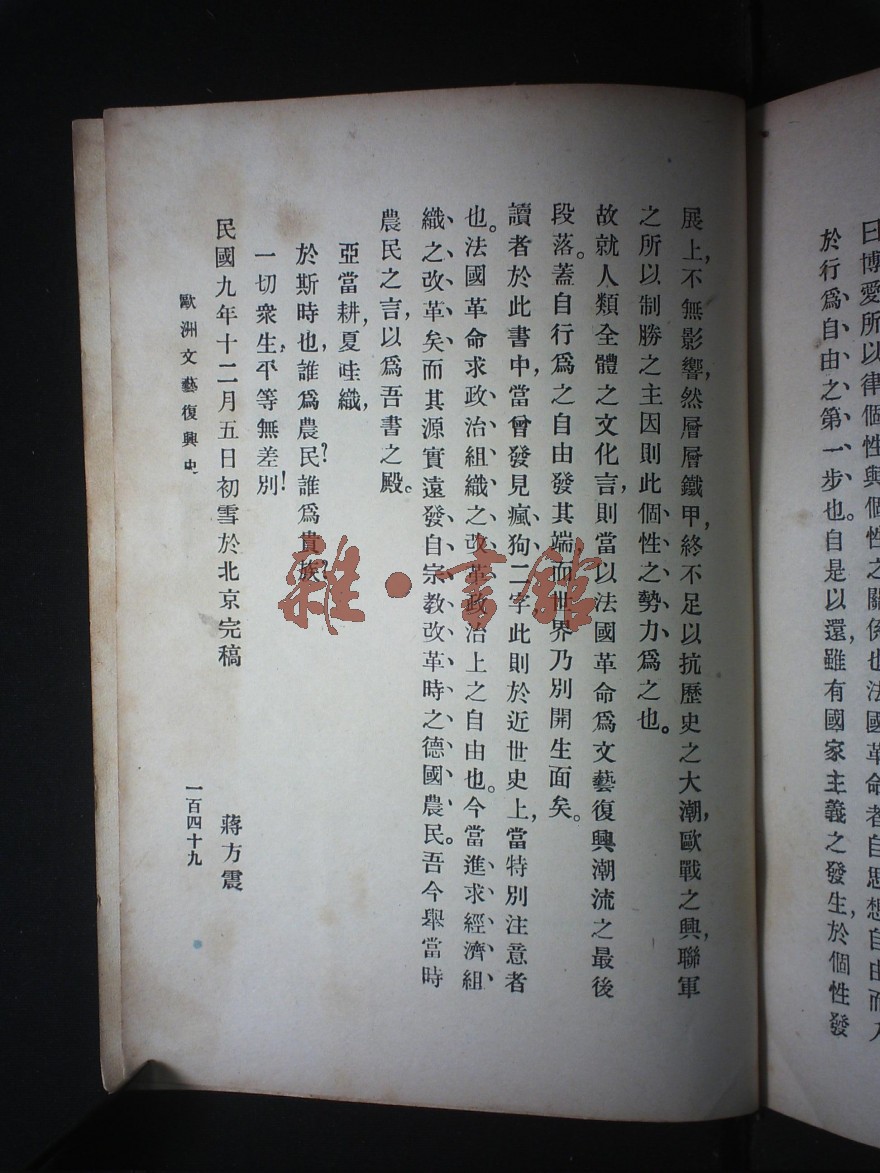 曰博愛所以律個性與個性之關係也法國革命者自思想自由而入
於行爲自由之第一步也。自是以還,雖有國家主義之發生,於個性發
展上,不無影響,然層層鐵甲,終不足以抗歷史之大潮,歐戰之興,聯軍
之所以制勝之主因則此個性之勢力爲之也。
故就人類全體之文化言,則當以法國革命爲文藝復興潮流之最後
段落。蓋自行爲之自由發其端而世界乃別開生面矣。
讀者於此書中,當曾發見瘋狗二字此則於近世史上,當特別注意者
也。法國革命求政治組織之改革政治上之自由也。今當進求經濟組
織之改革矣而其源實遠發自宗教改革時之德國農民。吾今舉當時
農民之言,以爲吾書之殿。
亞當耕,夏哇織,
於斯時也,誰爲農民?誰爲貴族?
一切衆生,平等無差別!
民國九年十二月五日初雪於北京完稿 蔣方震
歐洲文藝復興史 一百四十九
雜·書館